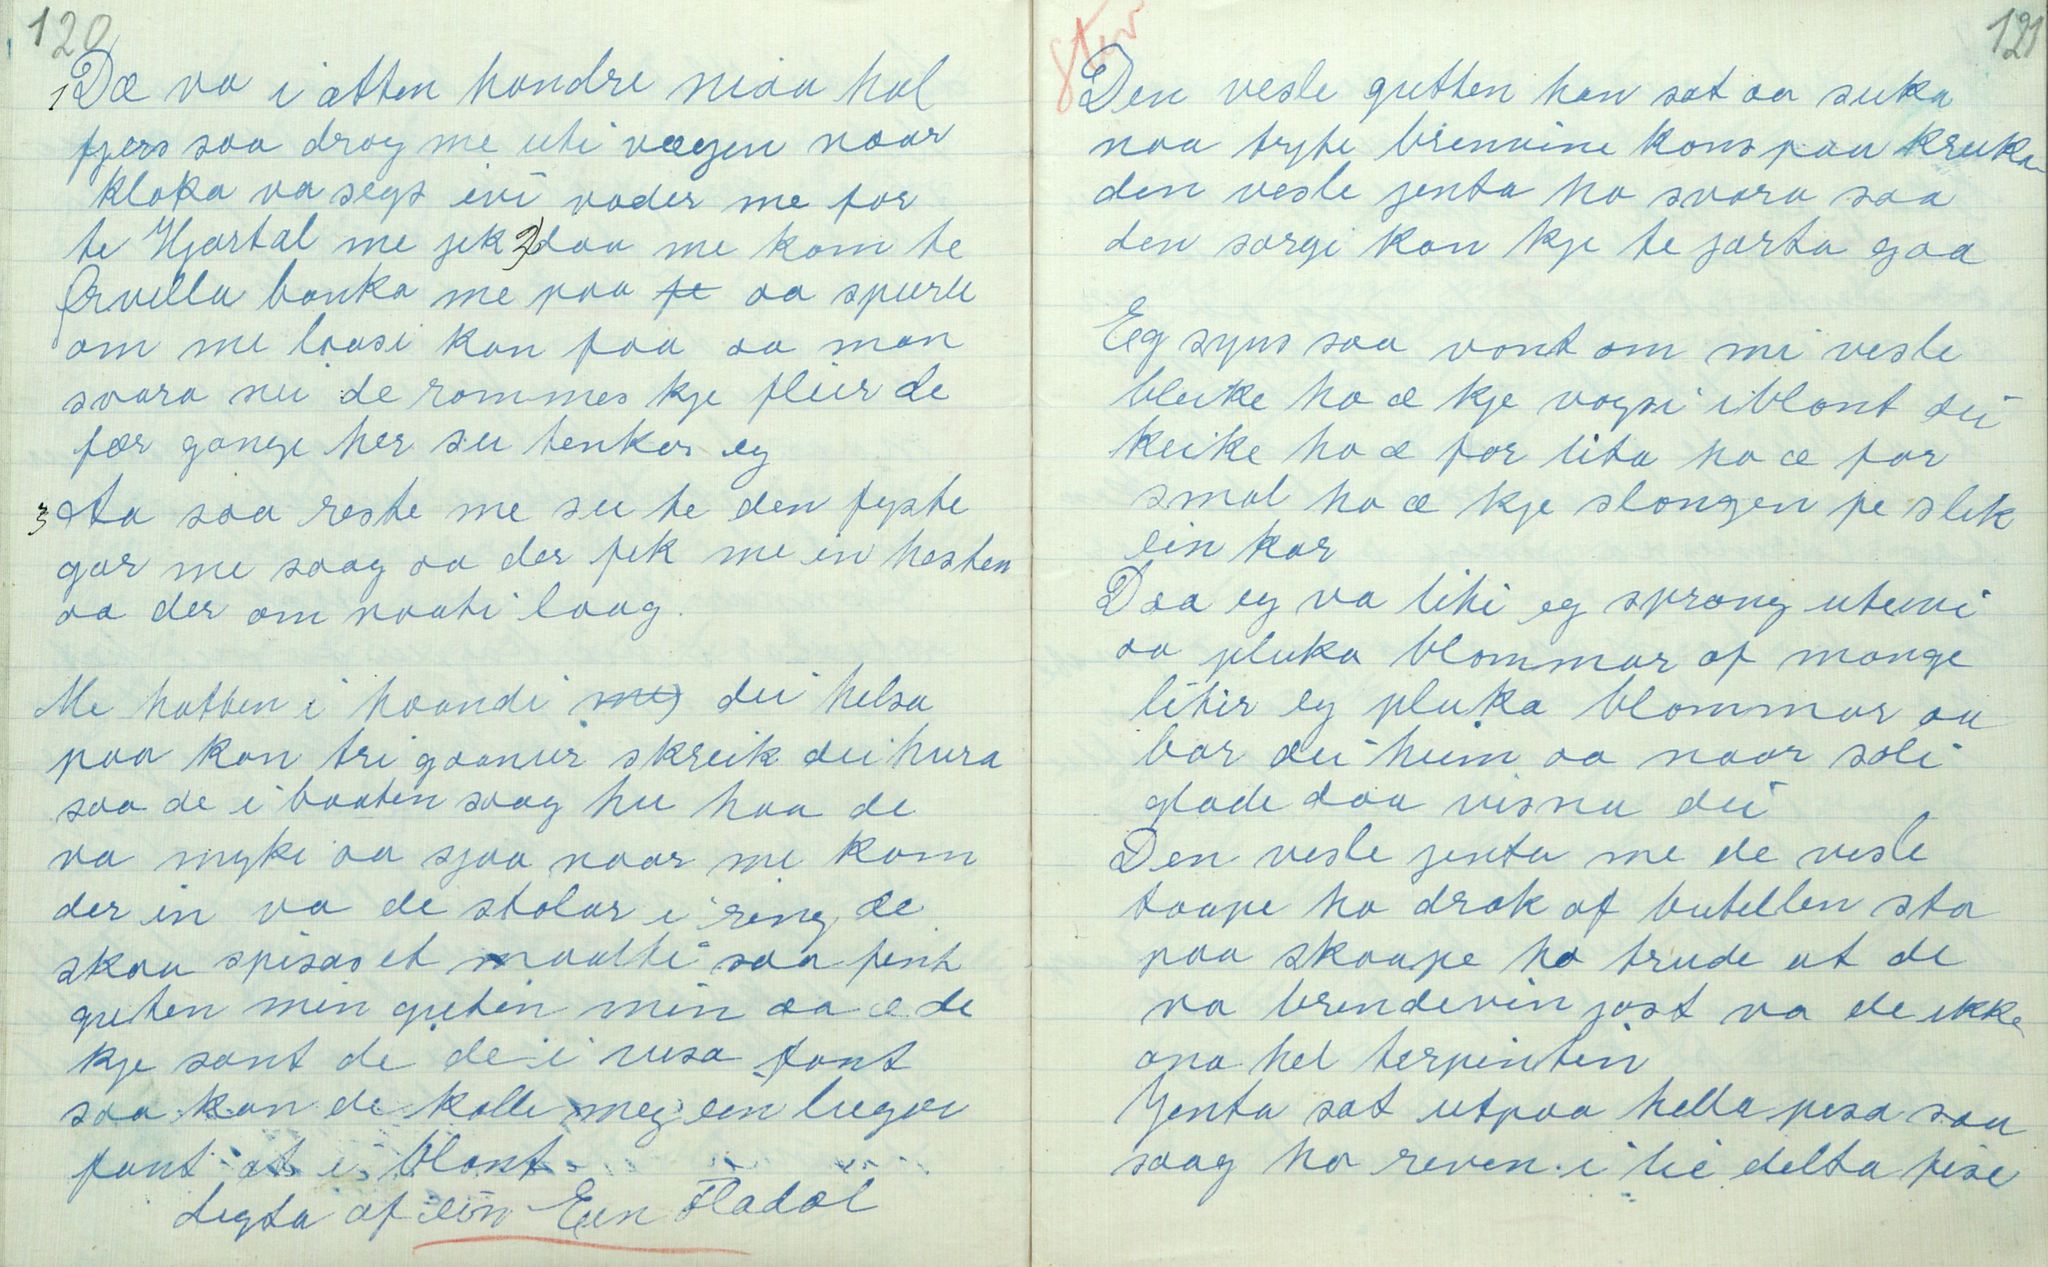 120
1 Dæ va i atten hondre niaa hal
fjers saa drog me uti vægen naar
kloka va segs ivi voder me for
te Hjartal me jek 2) daa me kom te
Ørvella banka me paa aa spurde
om me loosi kan faa aa man
svara nei de rommes kje fleir de
fær gange her su tenker eg
3 Aa saa reste me su te den fyste
gar me saag aa der fik me in hesten
aa der om naati laag.
Me hatten i haandi dei helsa
paa kon tri goonur skreik dei hura
saa de i baaten saag hu haa de
va myki aa sjaa naar me kom
der in va de stolar i ring de
skaa spisas et maalti saa fint
guten min guten min aa æ de
kje sant de de i visa fant
saa kan de kalle meg een liugar
fant at i blant
Digta af ein Een Fladal
8 Stev
121
Den vesle gutten han sat aa suka
naa tryte brennvine hons paa kruka
den vesle jenta ho svara saa
den sorgi kan kje te jarta gaa
Eg syns saa vont om mi vesle
bleike ho æ kje vogsi iblont dei
keike ho æ for lita ho æ for
smal ho æ kje slongen fe slik
ein kar
Daa eg va liti eg sprang utuvi
aa pluka blommar af mange
litir eg pluka blommar aa
bar dei heim aa naar soli
glade daa visna dei
Den vesle jenta me de vesle
taape ho drak af butellen sto
paa skaape ho trude at de
va brendevin jast va de ikke
ana hel terpintin
Jenta sat utpaa hella pesa saa
saag ho reven i lie delta fise